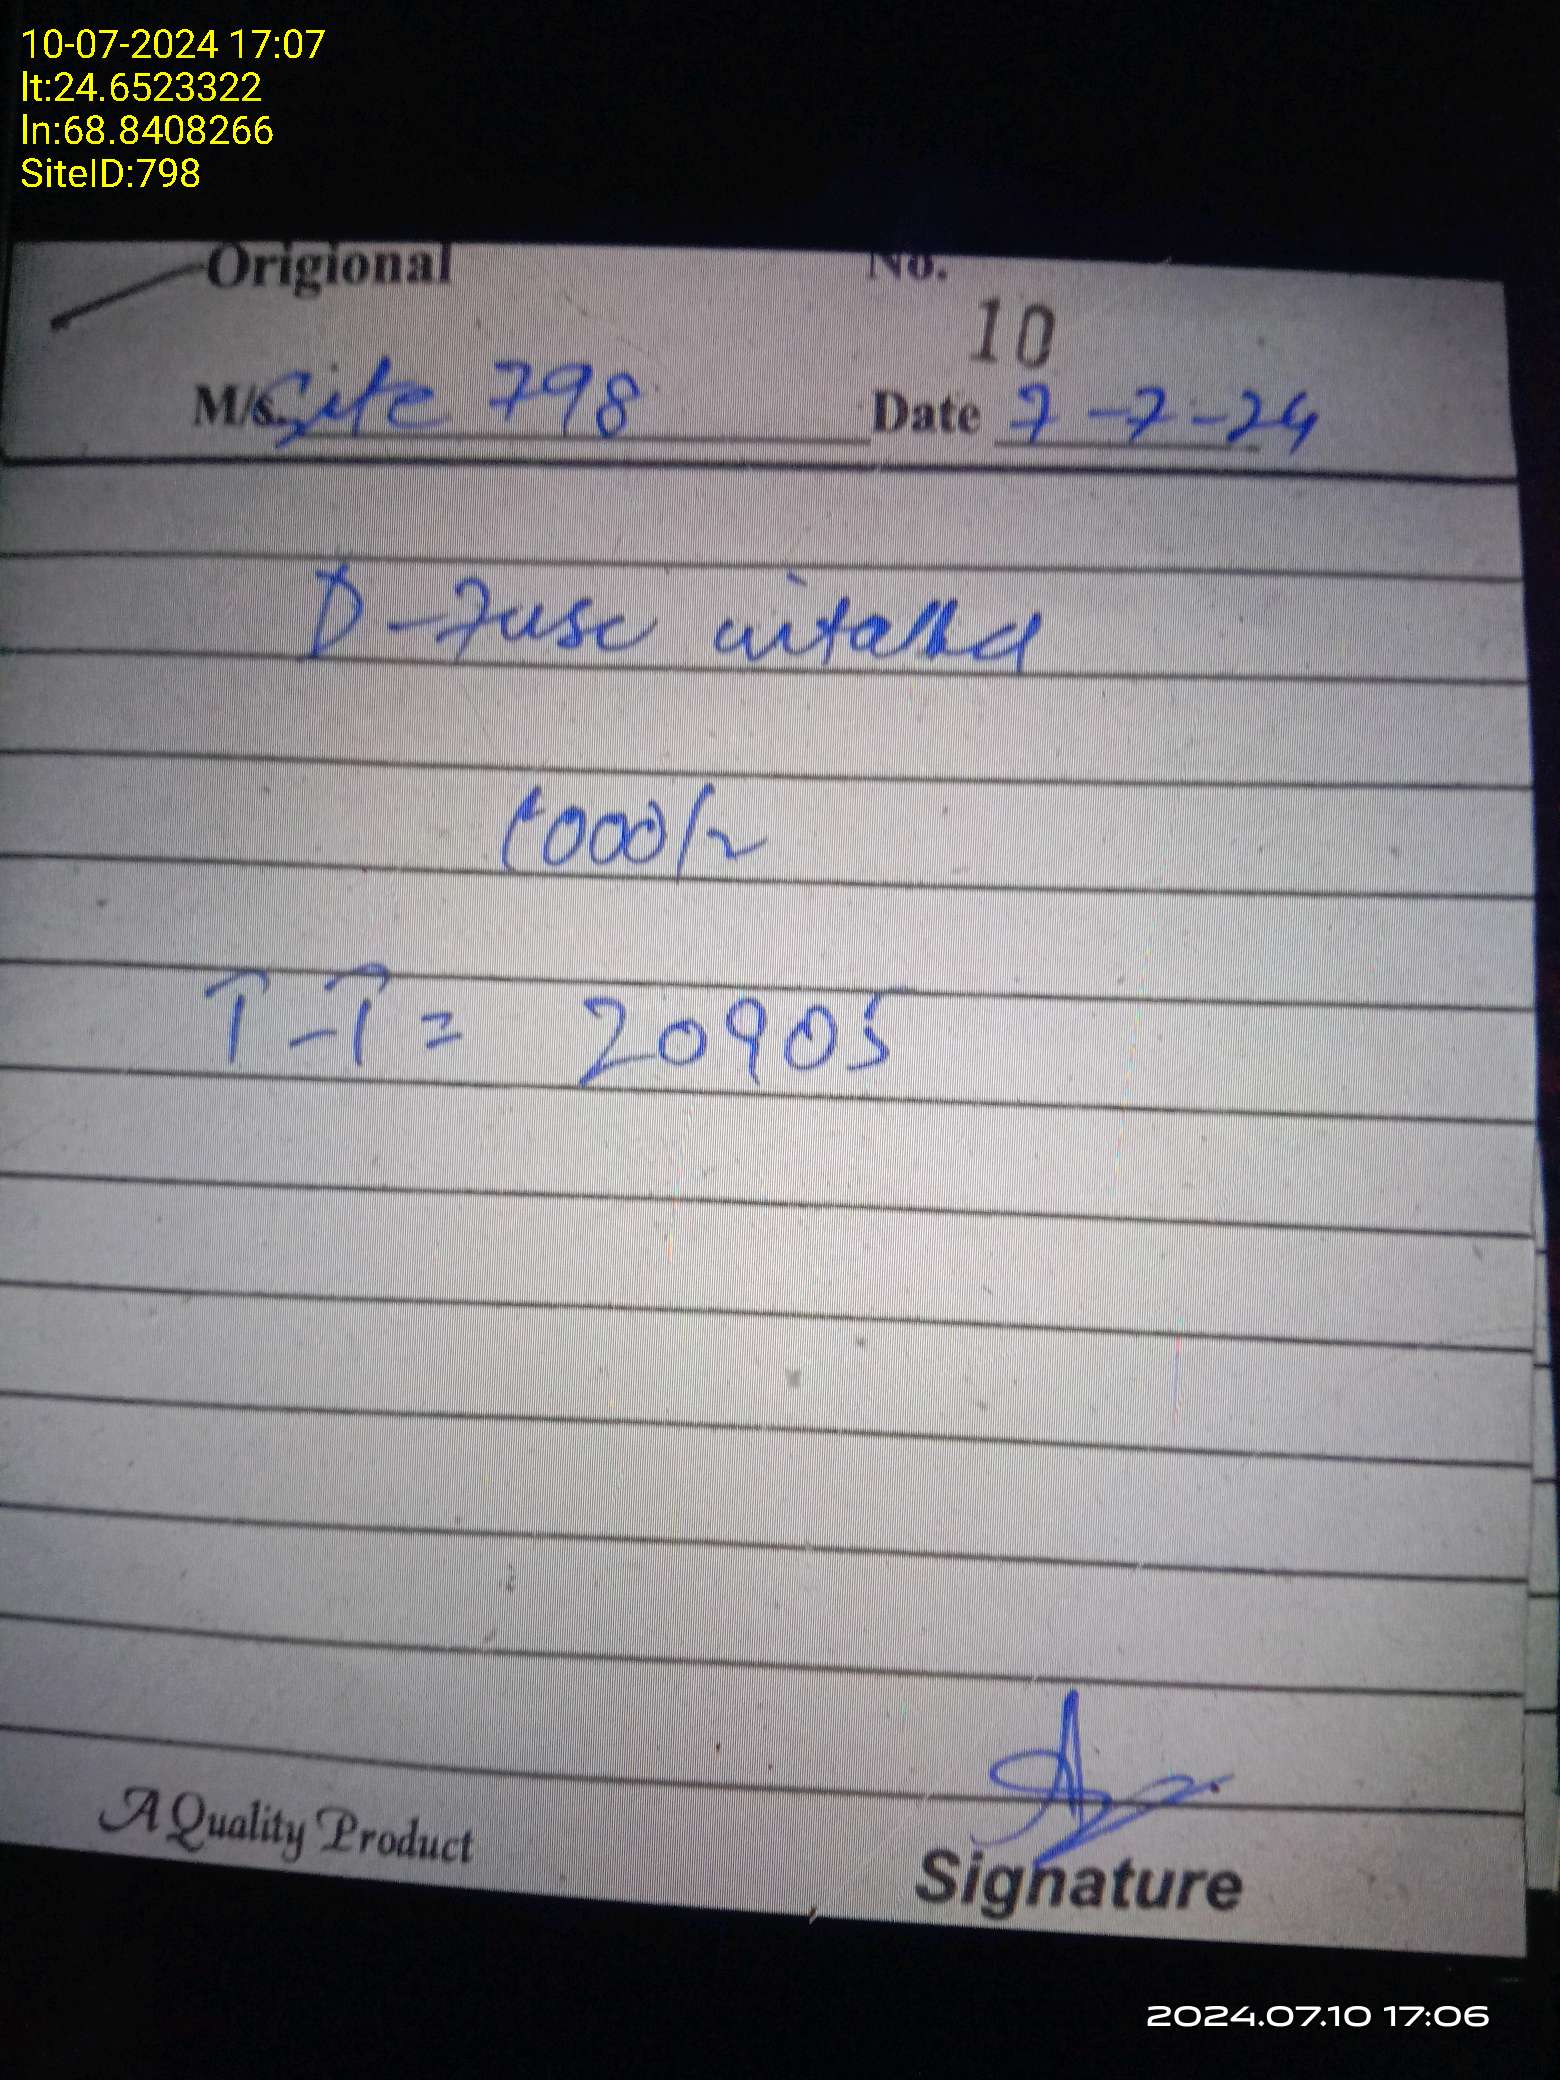 10-07-2024 17:07
lt:24.6523322
ln:68.8408266
SiteID:798
Origional No.
10
M/s. Site 798 Date 7-7-24
D-Fuse
1000/-
T-T= 20905
A Quality Product
Signature
2024.07.10 17:06